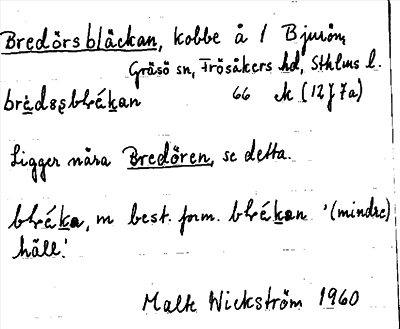 Bredörsbläckan, kobbe å / Bjurön,
Gräsö sn, Frösåkers hd, Sthlms l.
brèdsbléḵan 66 (12J7a)
Ligger nära Bredören, se detta.
bléḵa, m best. form. bléḵan '(mindre)
häll'.
Malte Wickström 1960